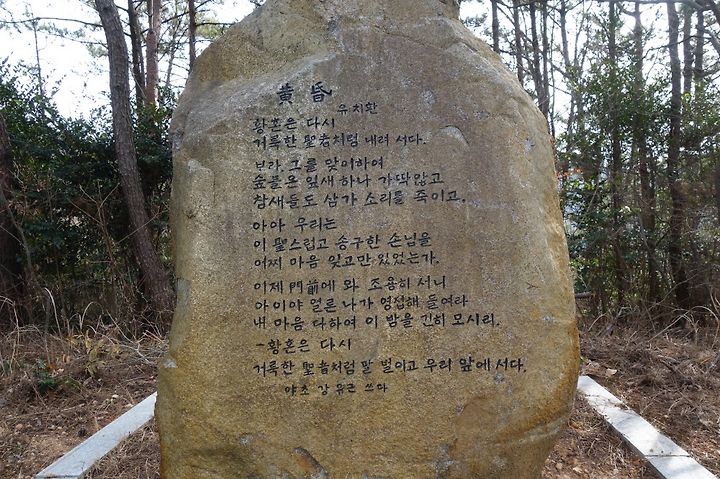 黃昏
우치환
황혼은 다시
거룩한 聖者처럼 내려 서다.
보라, 그를 맞이하여
숲들은 잎새 하나 가딱않고
참새들도 삼가 소리를 죽이고.
아아 우리는
이 聖스럽고 송구한 손님을
어찌 마음 잊고만 있었는가.
이제 門前에 와 조용히 서니
아이야 얼른 나가 영접해 들여라
내 마음 다하여 이 밤을 긴히 모시리.
-황혼은 다시
거룩한 聖者처럼 말 벌이고 우리 앞에 서다.
야초 강 유근 쓰다